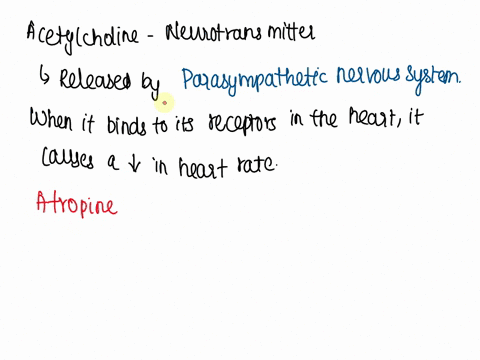 Acetylcholine - Neurotransmitter
↳ Released by Parasympathetic nervous system.
When it binds to its receptors in the heart, it
causes a ↓ in heart rate.
Atropine